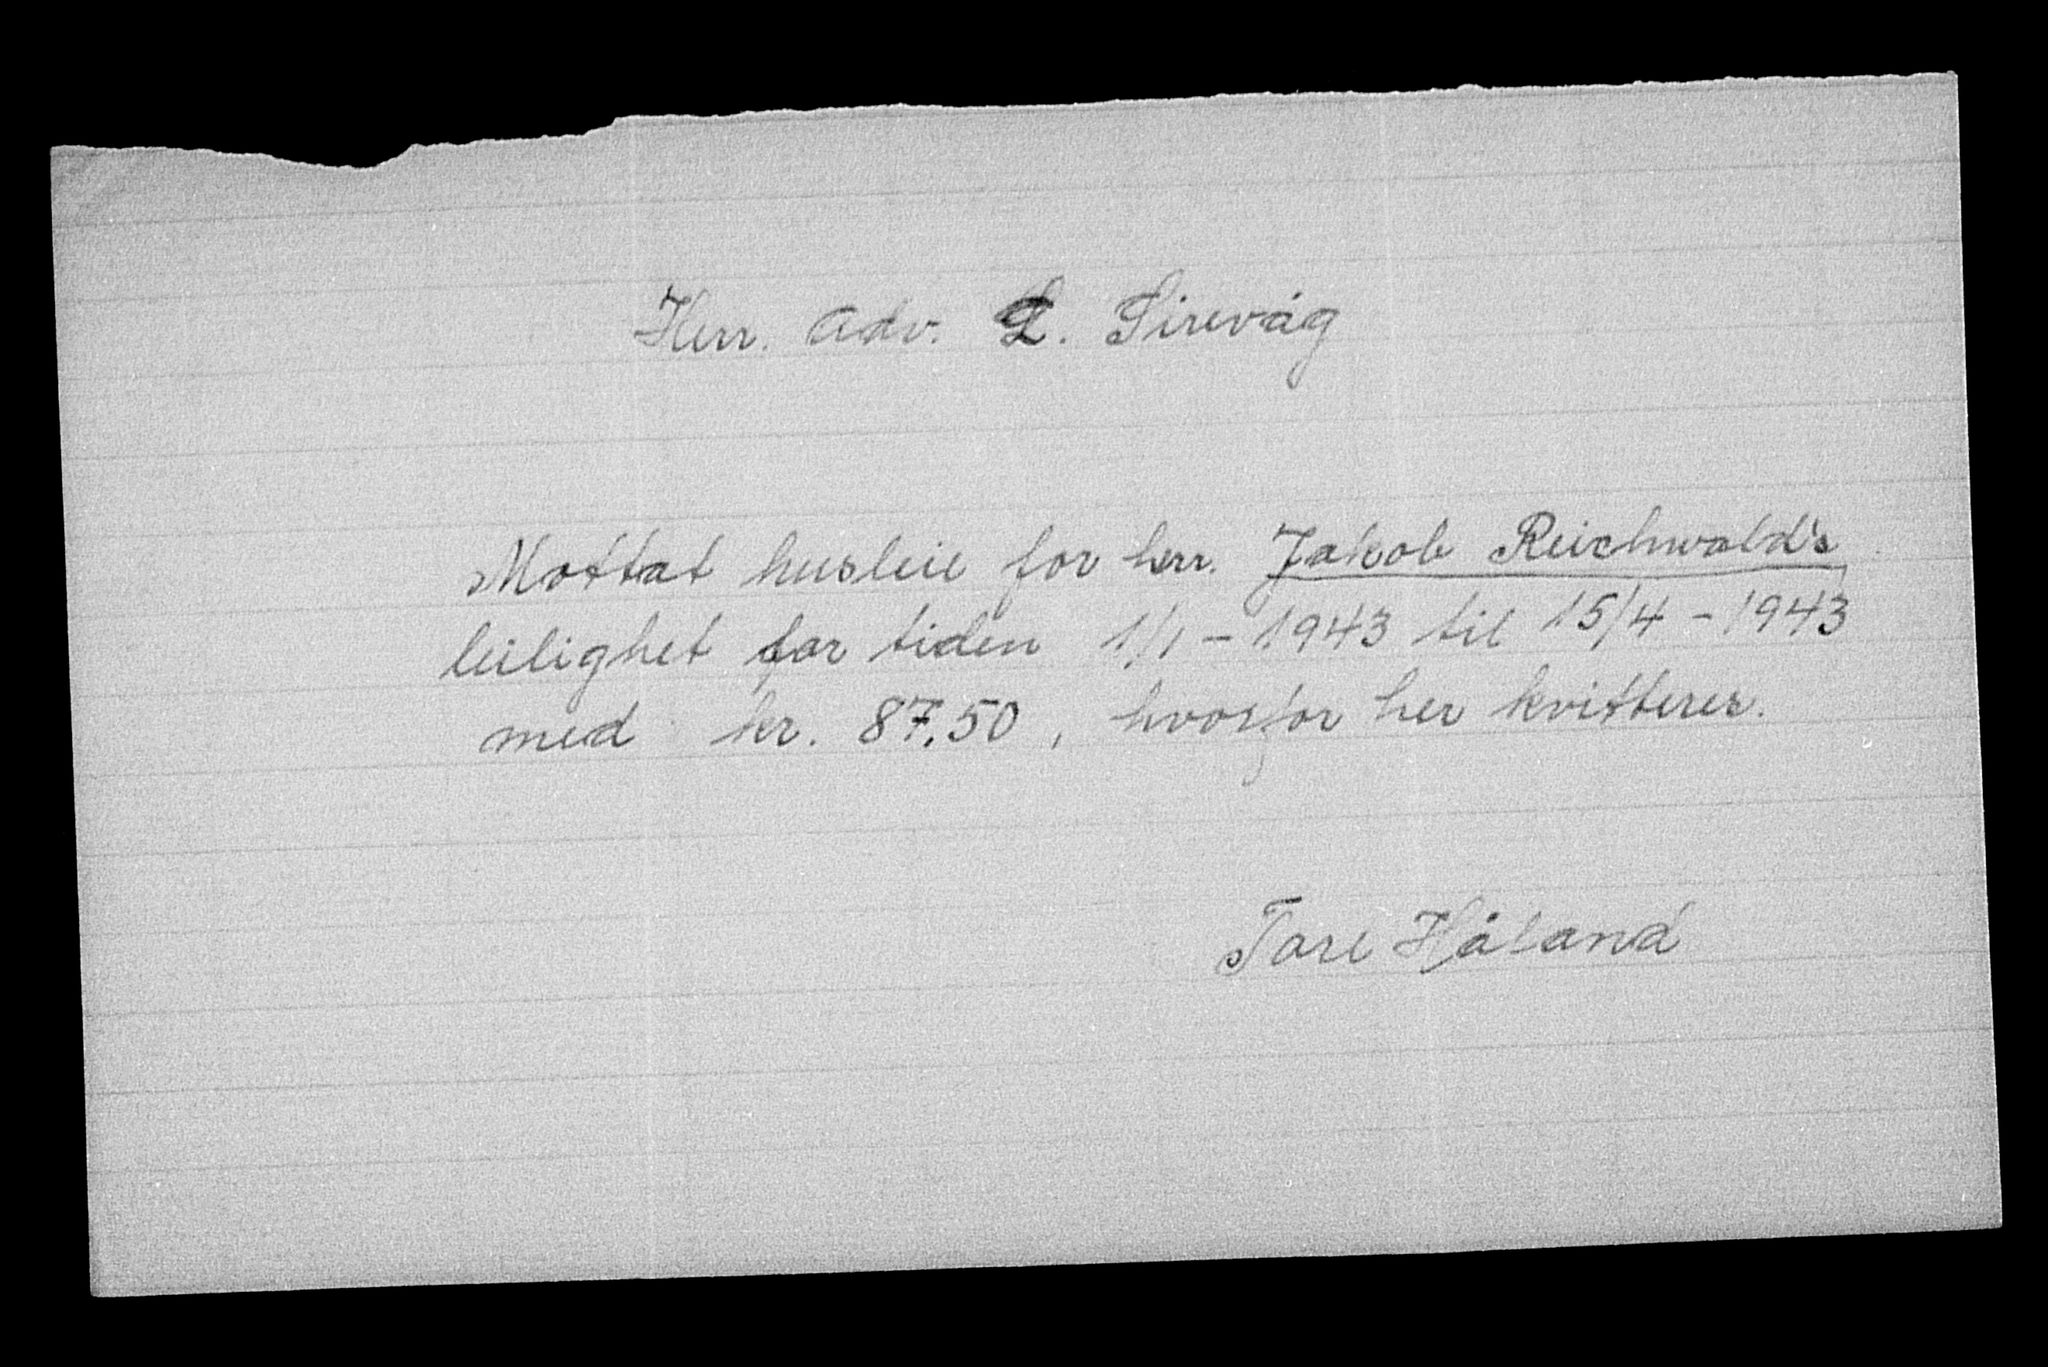 Herr. Adv. L. Sirevåg
Mottat husleie for herr. Jakob Reichwald's
leilighet for tiden 1/1 - 1943 til 15/4 - 1943
med kr. 87,50, hvorfor her kvitterer.
Tore Håland